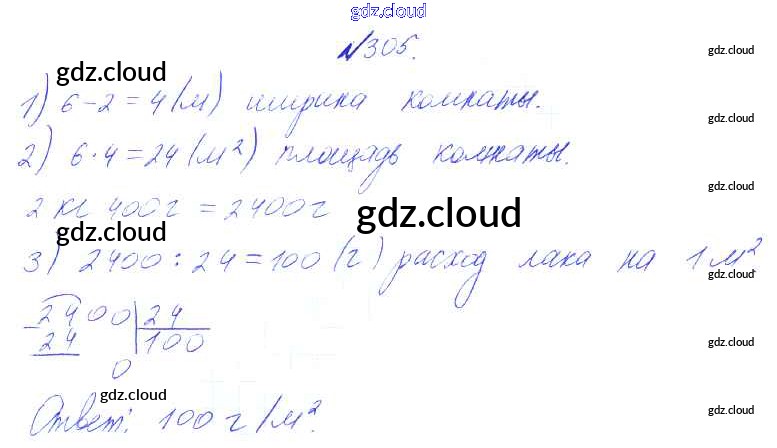 gdz.cloud
№305.
gdz.cloud
gdz.cloud
1) 6-2=4(м) ширина комнаты.
gdz.cloud
2) 6·4=24(м²) площадь комнаты.
gdz.cloud
2 кг 400г = 2400г
gdz.cloud
gdz.cloud
3) 2400:24=100(г) расход лака на 1м²
gdz.cloud
2400 24
24 100
gdz.cloud
0
gdz.cloud
Ответ: 100 г/м².
gdz.cloud